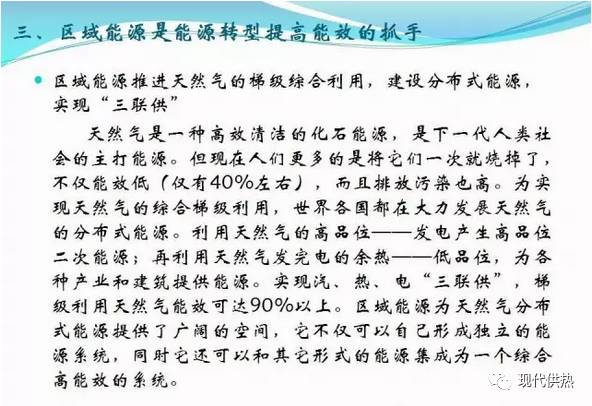 三、区域能源是能源转型提高能效的抓手
• 区域能源推进天然气的梯级综合利用，建设分布式能源，
实现“三联供”
天然气是一种高效清洁的化石能源，是下一代人类社
会的主打能源。但现在人们更多的是将它们一次就烧掉了，
不仅能效低（仅有40%左右），而且排放污染也高。为实
现天然气的综合梯级利用，世界各国都在大力发展天然气
的分布式能源。利用天然气的高品位——发电产生高品位
二次能源；再利用天然气发完电的余热——低品位，为各
种产业和建筑提供能源。实现汽、热、电“三联供”，梯
级利用天然气能效可达90%以上。区域能源为天然气分布
式能源提供了广阔的空间，它不仅可以自己形成独立的能
源系统，同时它还可以和其它形式的能源集成为一个综合
高能效的系统。
现代供热